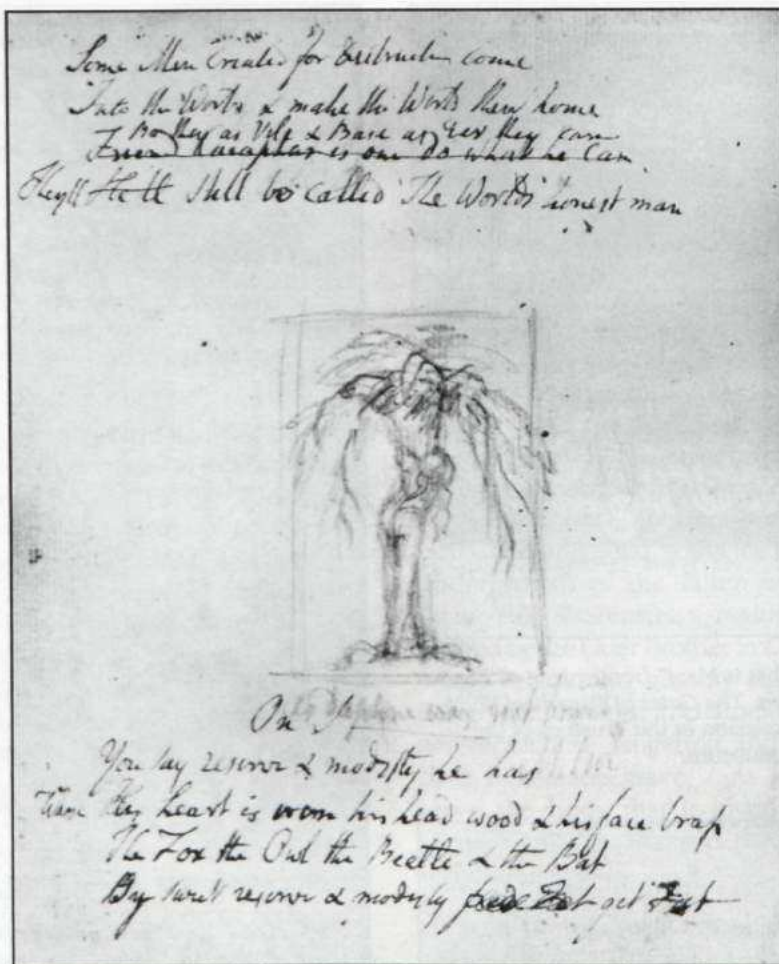 Some Men Created for destruction come
Into the World & make the World their home
Be they as Vile & Base as Eer they can
Friend Caiaphas is one do what he Can
Theyll He'll still be called The Worlds honest man
On S
as Daphne was root bound
You say reserve & modesty he has
Whose heart is iron his head wood & his face brass
The Fox the Owl the Beetle & the Bat
By sweet reserve & modesty feed Fat get Fat